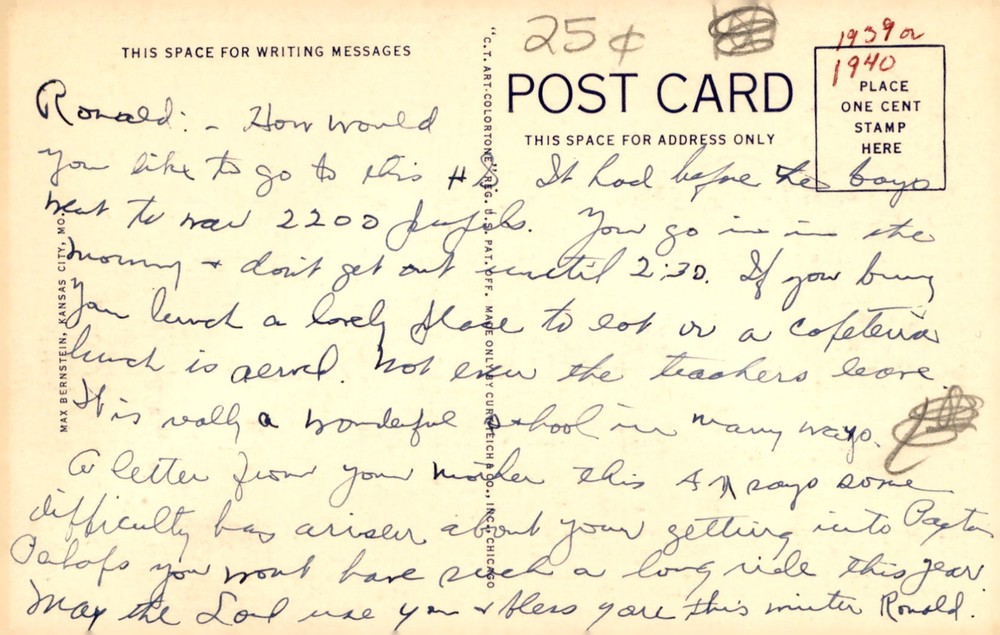 25¢
1939 or
1940
THIS SPACE FOR WRITING MESSAGES
POST CARD
THIS SPACE FOR ADDRESS ONLY
PLACE
ONE CENT
STAMP
HERE
"C.T. ART-COLORTONE" REG. U.S. PAT. OFF. MADE ONLY BY CURT TEICH & CO., INC., CHICAGO
MAX BERNSTEIN, KANSAS CITY, MO.
Ronald: - How would
you like to go to this H.S. It had before the boys
went to war 2200 pupils. You go in in the
morning & don't get out until 2:30. If you bring
your lunch a lovely place to eat or a cafeteria
lunch is served. Not even the teachers leave.
It is really a wonderful school in many ways.
A letter from your mother this A M says some
difficulty has arisen about your getting into Paxton
Perhaps you wont have such a long ride this year
May the Lord use you & bless you this winter Ronald.